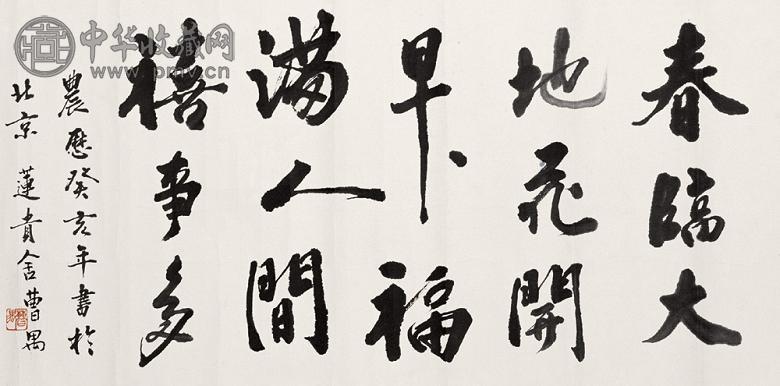 中华收藏网
春臨大
地花開
早、福
滿人間
禧事多
農歷癸亥年書於
北京 蓮貴舍曹禺